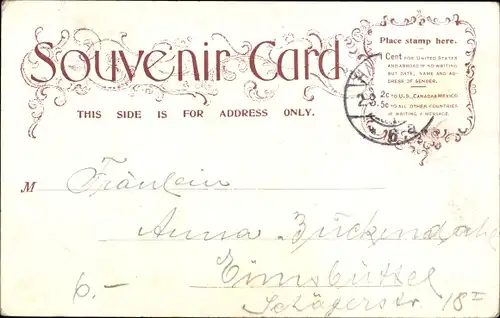 Souvenir Card
THIS SIDE IS FOR ADDRESS ONLY.
Place stamp here.
1 Cent FOR UNITED STATES
AND ABROAD IF NO WRITING
BUT DATE, NAME AND AD-
DRESS OF SENDER.
2c TO U.S., CANADA & MEXICO.
5c TO ALL OTHER COUNTRIES
IF WRITING A MESSAGE.
2.3.
M Fräulein
Anna Zuckendahl
Eimsbüttel
6.-
Schägerstr. 18 I